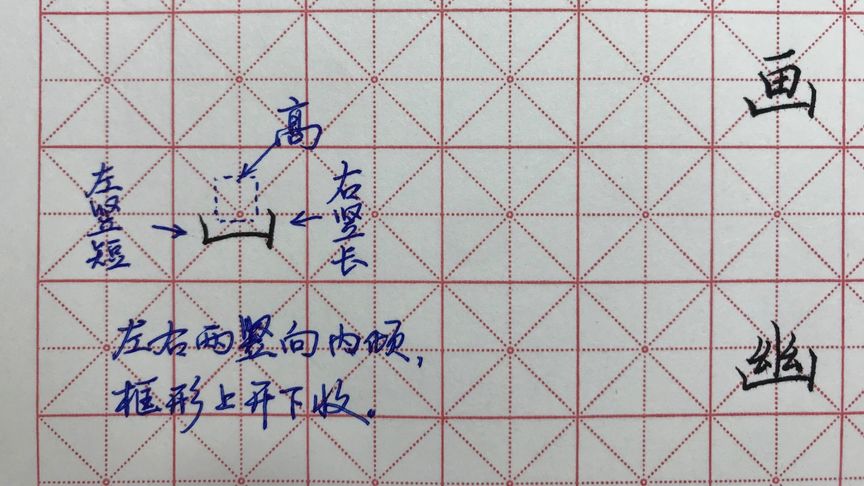 高
左竖短
右竖长
左右两竖向内倾,
框形上开下收。
画
幽